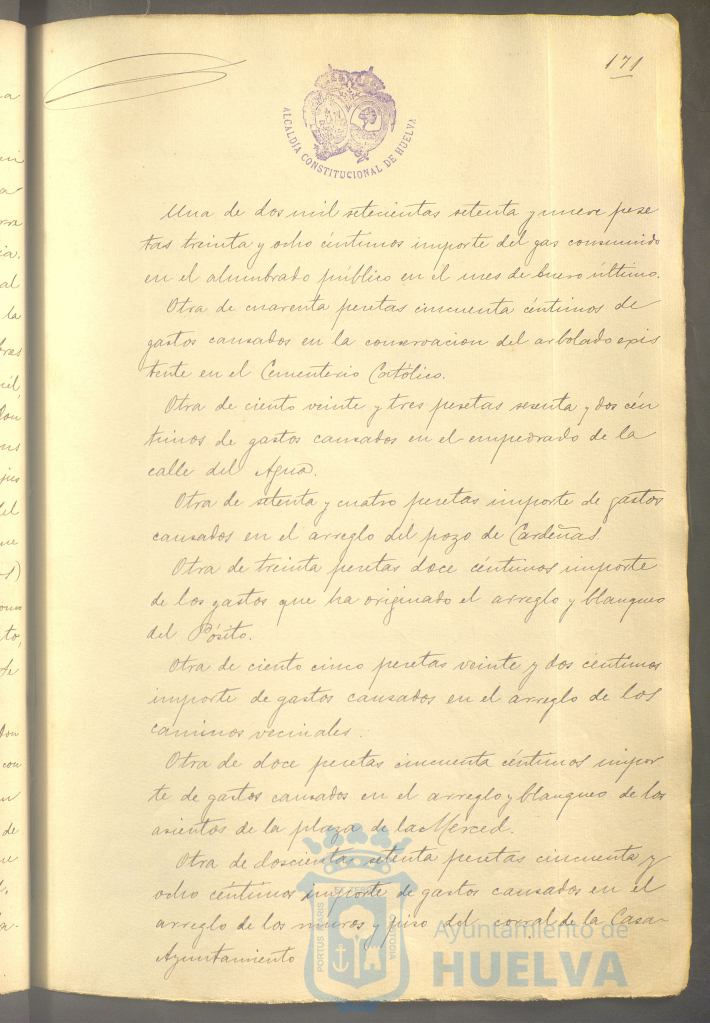 171
ALCALDIA CONSTITUCIONAL DE HUELVA
Una de dos mil setecientas setenta y nueve pese
tas treinta y ocho céntimos importe del gas consumido
en el alumbrado público en el mes de Enero último.
Otra de cuarenta pesetas cincuenta céntimos de
gastos causados en la conservacion del arbolado exis
tente en el Cementerio Católico.
Otra de ciento veinte y tres pesetas sesenta y dos cén
timos de gastos causados en el empedrado de la
calle del Agua.
Otra de setenta y cuatro pesetas importe de gastos
causados en el arreglo del pozo de Cardeñas.
Otra de treinta pesetas doce céntimos importe
de los gastos que ha originado el arreglo y blanqueo
del Pósito.
Otra de ciento cinco pesetas veinte y dos centimos
importe de gastos causados en el arreglo de los
caminos vecinales.
Otra de doce pesetas cincuenta céntimos impor
te de gastos causados en el arreglo y blanqueo de los
asientos de la plaza de la Merced.
Otra de doscientas setenta pesetas cincuenta y
ocho céntimos importe de gastos causados en el
arreglo de los muros y piso del corral de la Casa-
Ayuntamiento
PORTUS MARIS ET TERRAE CUSTODIA
Ayuntamiento de
HUELVA